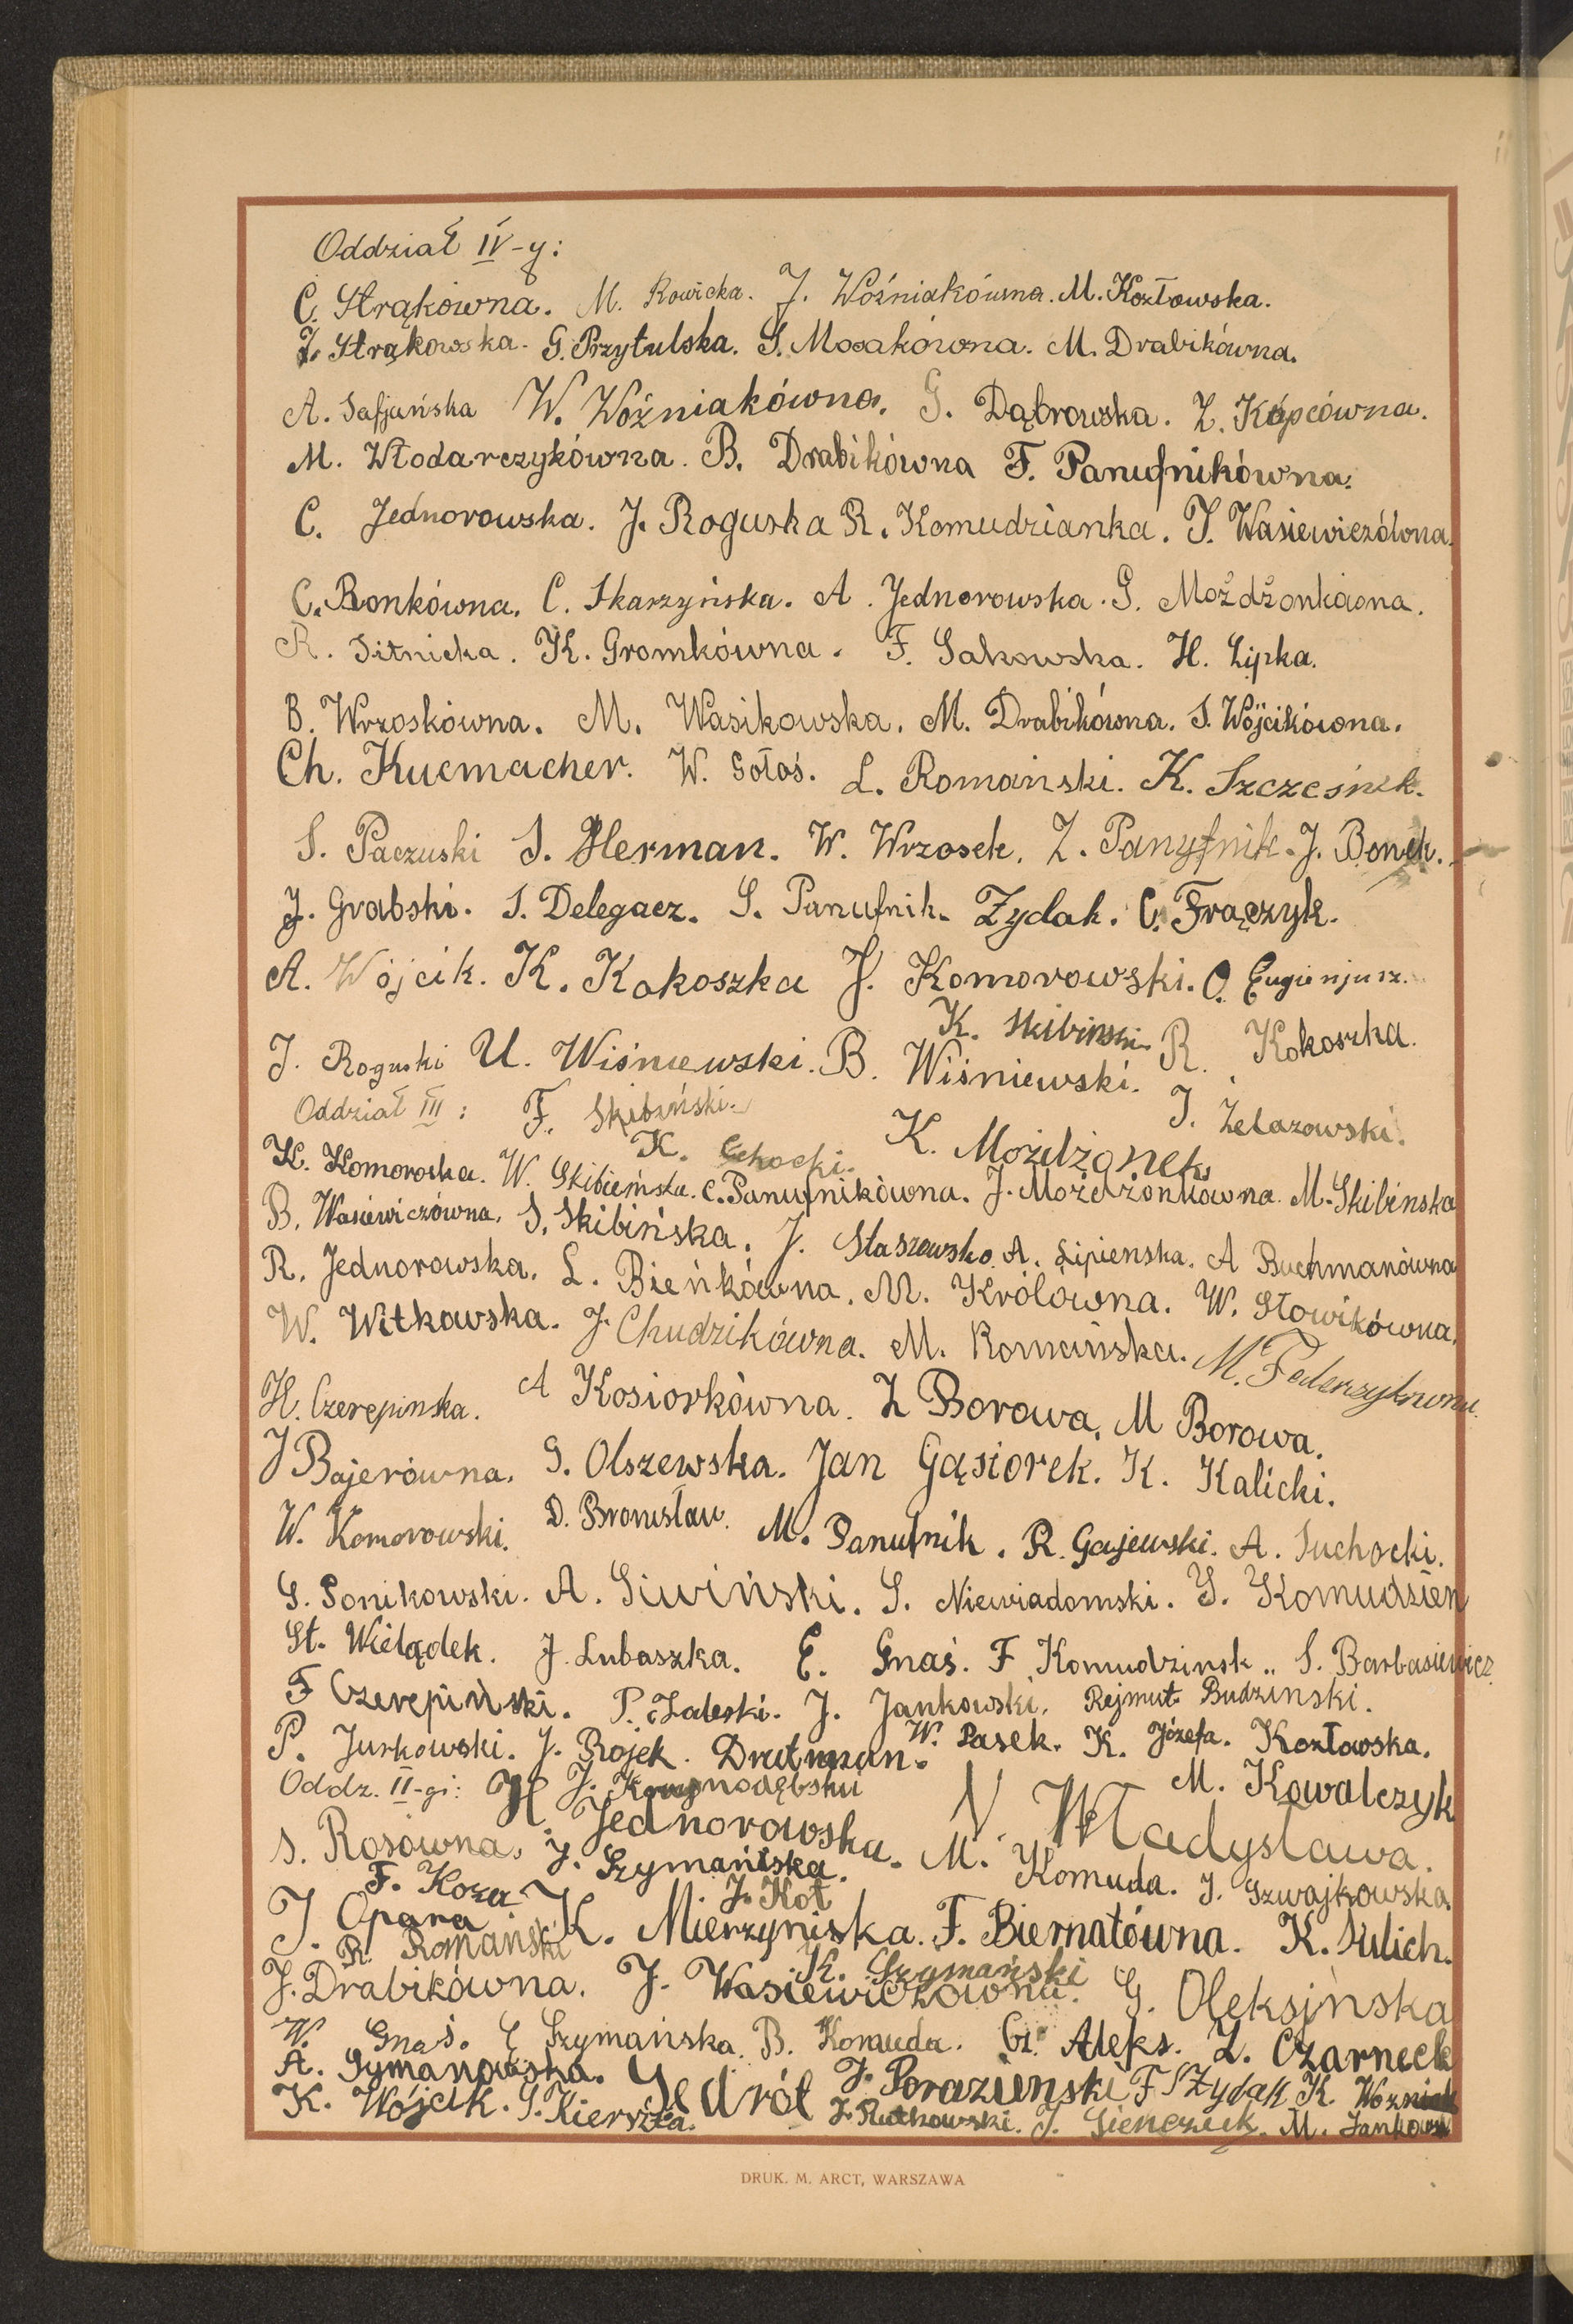 Oddział IV-y:
C. Strąkówna. M. Rowicka. J. Woźniakówna. M. Kozłowska.
Z. Strąkowska. G. Przytulska. S. Mosakówna. M. Drabikówna.
A. Safjańska W. Woźniakówna. G. Dąbrowska. Z. Kápcówna.
M. Włodarczykówna. B. Drabikówna F. Panufnikówna.
C. Jednorowska. J. Roguska R. Komudzianka. J. Wasiewiczówna.
C. Bonkówna. C. Skarzyńska. A. Jednorowska. G. Możdżonkówna.
R. Sitnicka. K. Gromkówna. F. Sakowska. H. Lipka.
B. Wrzoskówna. M. Wasikowska. M. Drabikówna. S. Wójcikówna.
Ch. Kucmacher. W. Gołoś. L. Romański. K. Szcześnik.
S. Paczuski S. Herman. W. Wrzosek. Z. Panufnik. J. Bonek.
J. Grabski. S. Delegacz. S. Panufnik. Zydak. C. Frączyk.
A. Wójcik. K. Kokoszka J. Komorowski. O. Eugienjusz.
K. Skibinski. R. Kokoszka.
J. Roguski U. Wiśniewski. B. Wiśniewski.
Oddział III: F. Skibiński. J. Żelazowski.
K. Cichocki. K. Możdżonek
K. Komoroska. W. Skibieńska. C. Panufnikówna. J. Możdżonkówna. M. Skibinska
B. Wasiewiczówna. S. Skibińska. J. Staszewska A. Lipienska. A Buchmanówna
R. Jednorowska. L. Bieńkówna. M. Królówna. W. Słowikówna.
W. Witkowska. J. Chudzikówna. M. Romańska. M. Federzykówna.
H. Czerepinska. A Kosiorkówna. Z Borowa. M Borowa.
J Bajerówna. G. Olszewska. Jan Gąsiorek. K. Kalicki.
W. Komorowski. D. Bronisław. M. Panufnik. R. Gajewski. A. Suchocki.
S. Ponikowski. A. Siwiński. S. Niewiadomski. J. Komudzien
St. Wielądek. J. Lubaszka. E. Gnaś. F Komudzinsk.. S. Barbasiewicz.
F Czerepiński. P. Zaleski. J. Jankowski. Rejmut Budzinski.
P. Jurkowski. J. Rojek. Drutman. W. Pasek. K. Józefa. Kozłowska.
Oddz. II-gi: J. M. Kowalczyk
H. Jednorowska. N Władysława.
S. Rosówna. J. Szymańska. M. Komuda. J. Szwajkowska.
F. Koza J. Kot
J. Opara K. Mierzyniska. F. Biernatówna. K. Kulich.
R. Romański K. Szymański
J. Drabikówna. J. Wasiewiczówna. G. Oleksinska
W. Gnaś. E Szymańska. B. Komuda. Gr. Aleks. Z. Czarneck
A. Symanowska. J. Porazienski F S Zydak K. Wozniak
K. Wójcik. S. Kierszka. Jedról J. Rutkowski. J. Sienczuk. M. Jankows
DRUK. M. ARCT, WARSZAWA